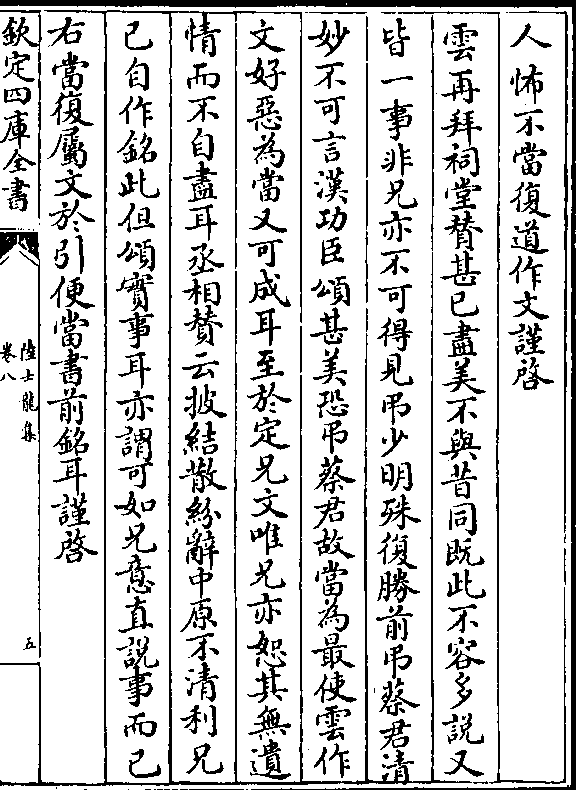 人怖不當復道作文謹啓
雲再拜祠堂賛甚已盡美不與昔同既此不容多說又
皆一事非兄亦不可得見弔少明殊復勝前弔蔡君清
妙不可言漢功臣頌甚美恐弔蔡君故當為最使雲作
文好惡為當又可成耳至於定兄文唯兄亦恕其無遺
情而不自盡耳丞相賛云披結散紛辭中原不清利兄
已自作銘此但頌實事耳亦謂可如兄意直說事而已
右當復屬文於引便當書前銘耳謹啓
欽定四庫全書
陸士龍集
卷八
五